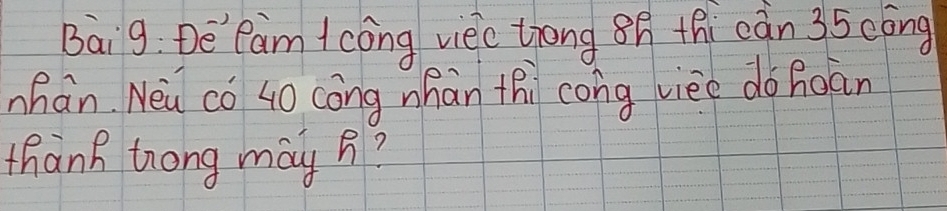 Bài 9: Để làm 1 công việc trong 8h thì cần 35 công
nhân. Nếu có 40 công nhân thì công việc đó hoàn
thành trong mấy h?